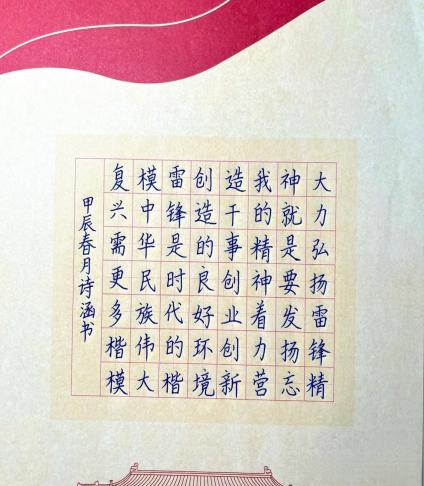 大力弘扬雷锋精
神就是要发扬忘
我的精神着力营
造干事创业创新
创造的良好环境
雷锋是时代的楷
模中华民族伟大
复兴需更多楷模
甲辰春月诗涵书